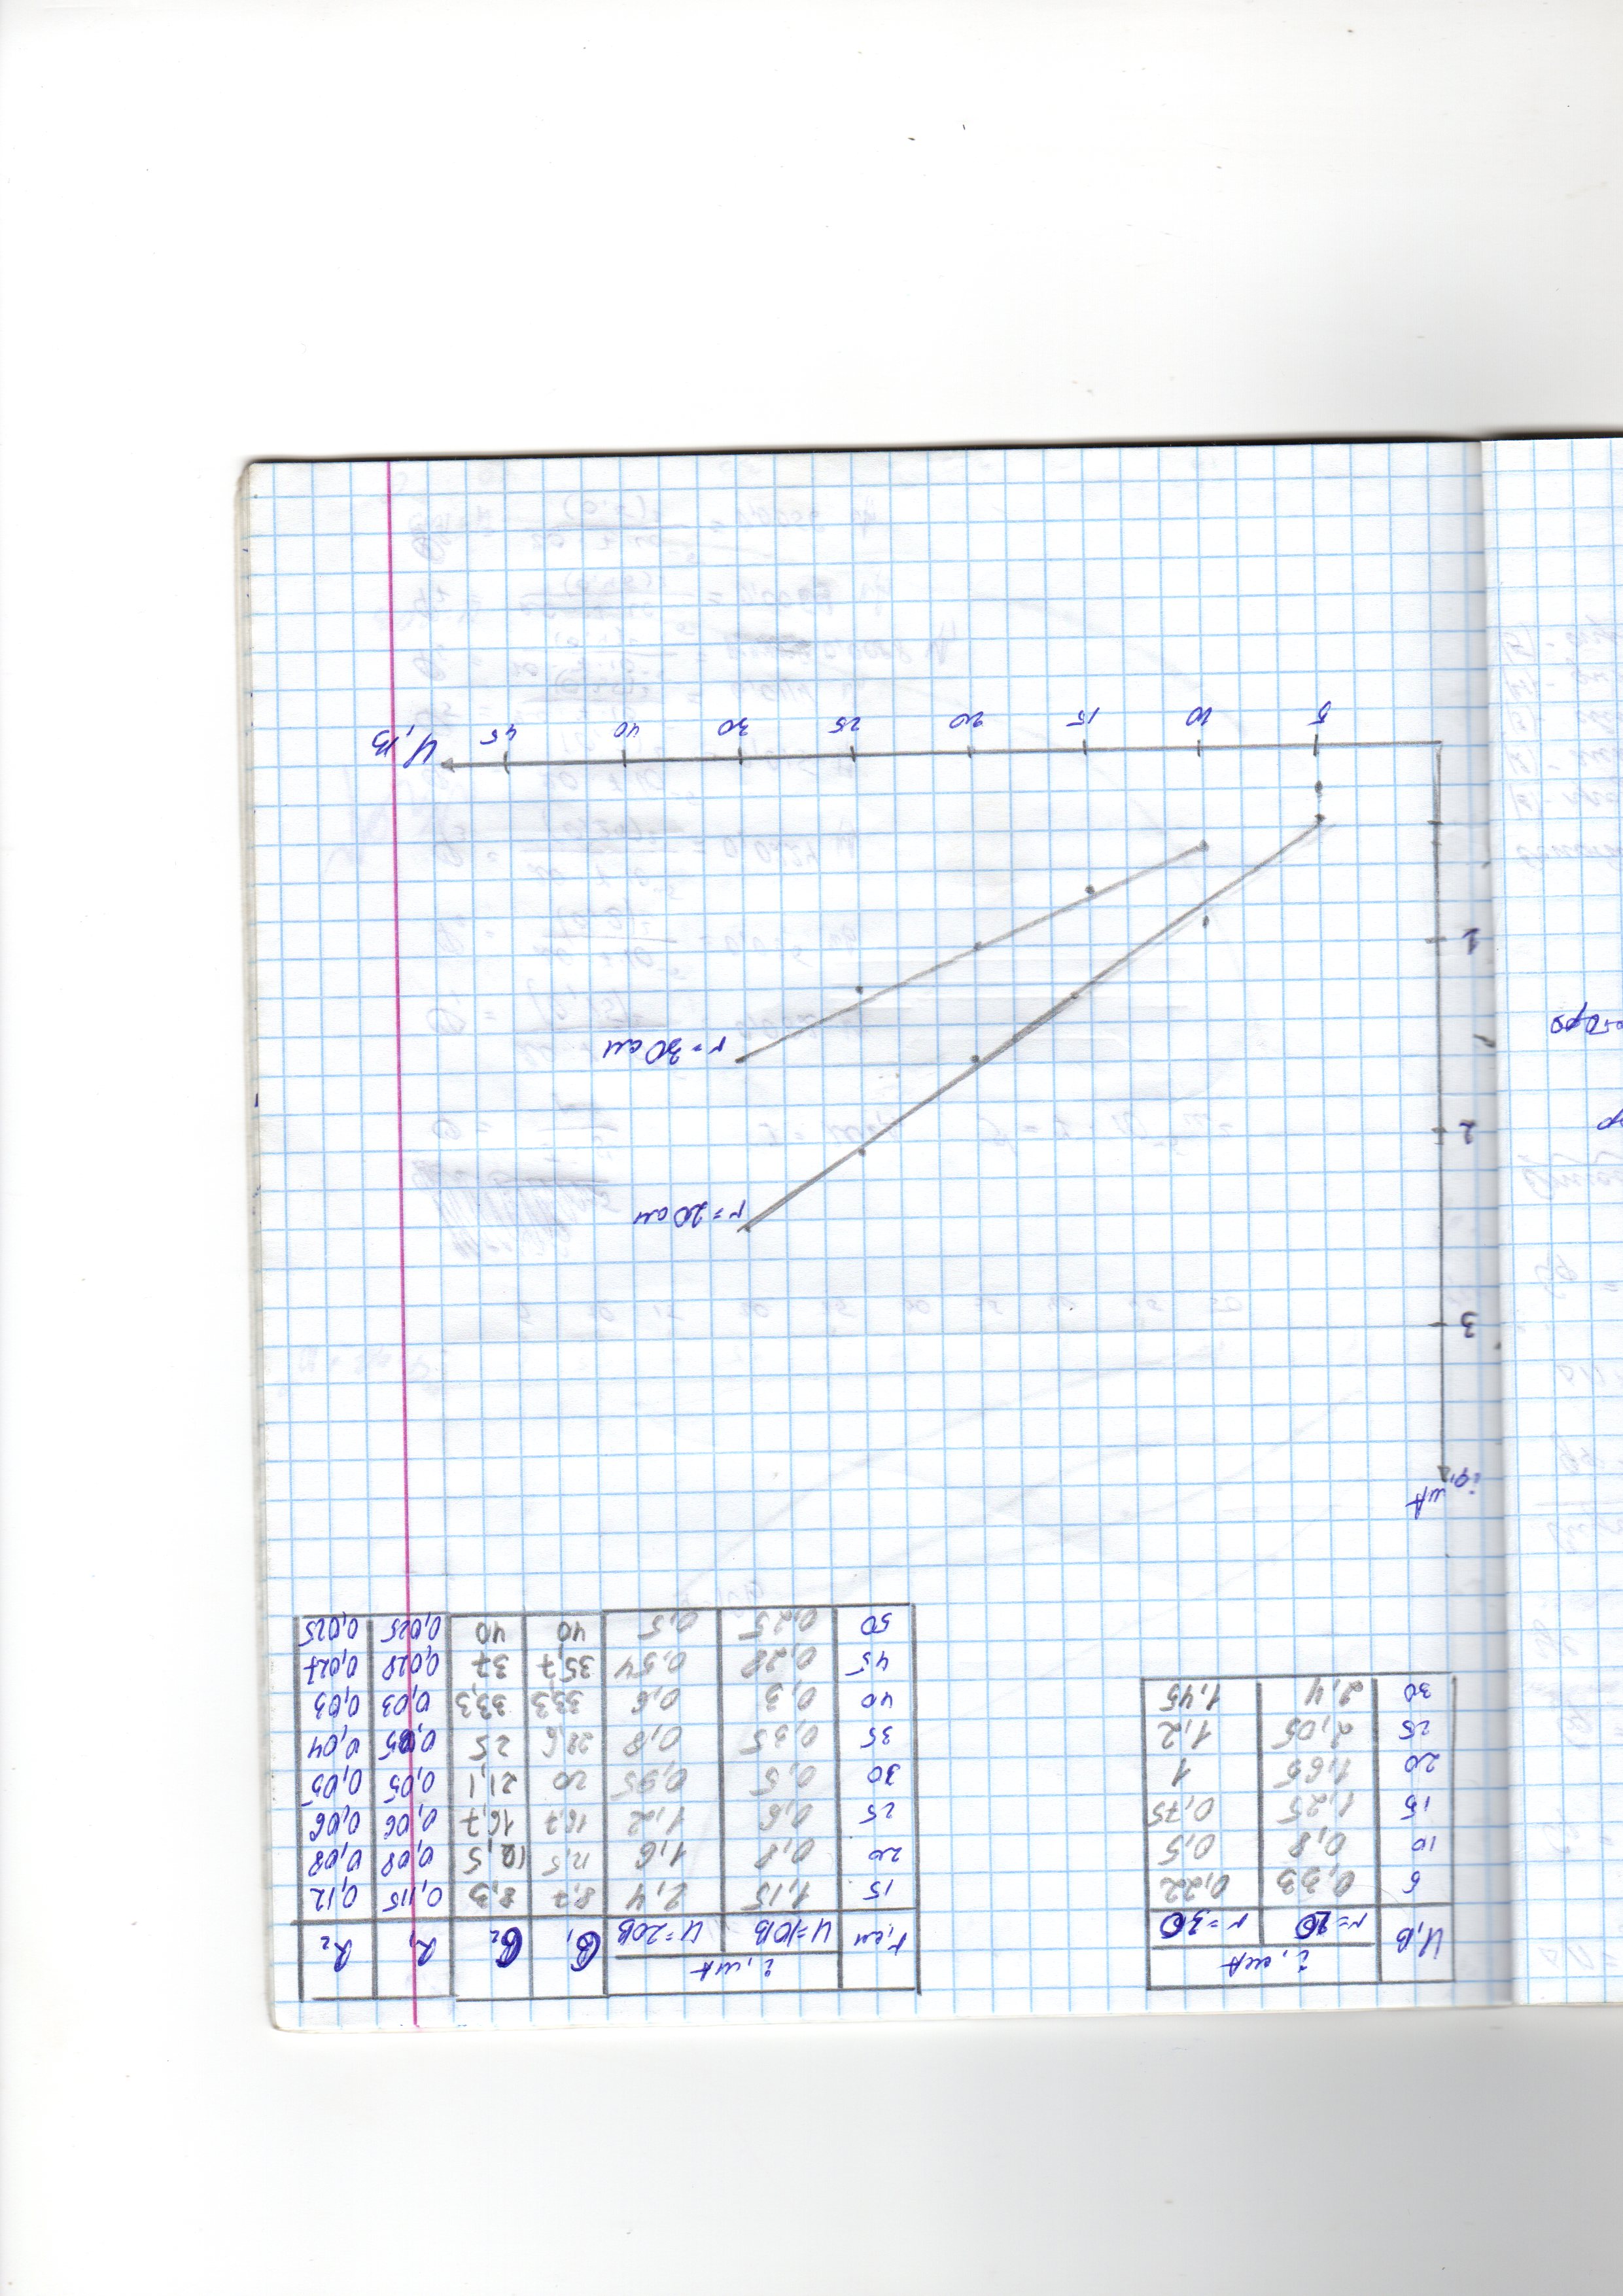 U,В i, мА
r=20 r=30
5 0,33 0,22
10 0,8 0,5
15 1,25 0,75
20 1,65 1
25 2,05 1,2
30 2,4 1,45
r,см i, мА б₁ б₂ R₁ R₂
U=10В U=20В
15 1,15 2,4 8,7 8,3 0,115 0,12
20 0,8 1,6 12,5 12,5 0,08 0,08
25 0,6 1,2 16,7 16,7 0,06 0,06
30 0,5 0,95 20 21,1 0,05 0,05
35 0,35 0,8 28,6 25 0,035 0,04
40 0,3 0,6 33,3 33,3 0,03 0,03
45 0,28 0,54 35,7 37 0,028 0,027
50 0,25 0,5 40 40 0,025 0,025
iф, мА
3
r=20 см
2
r=30 см
1
5 10 15 20 25 30 40 45 U,В